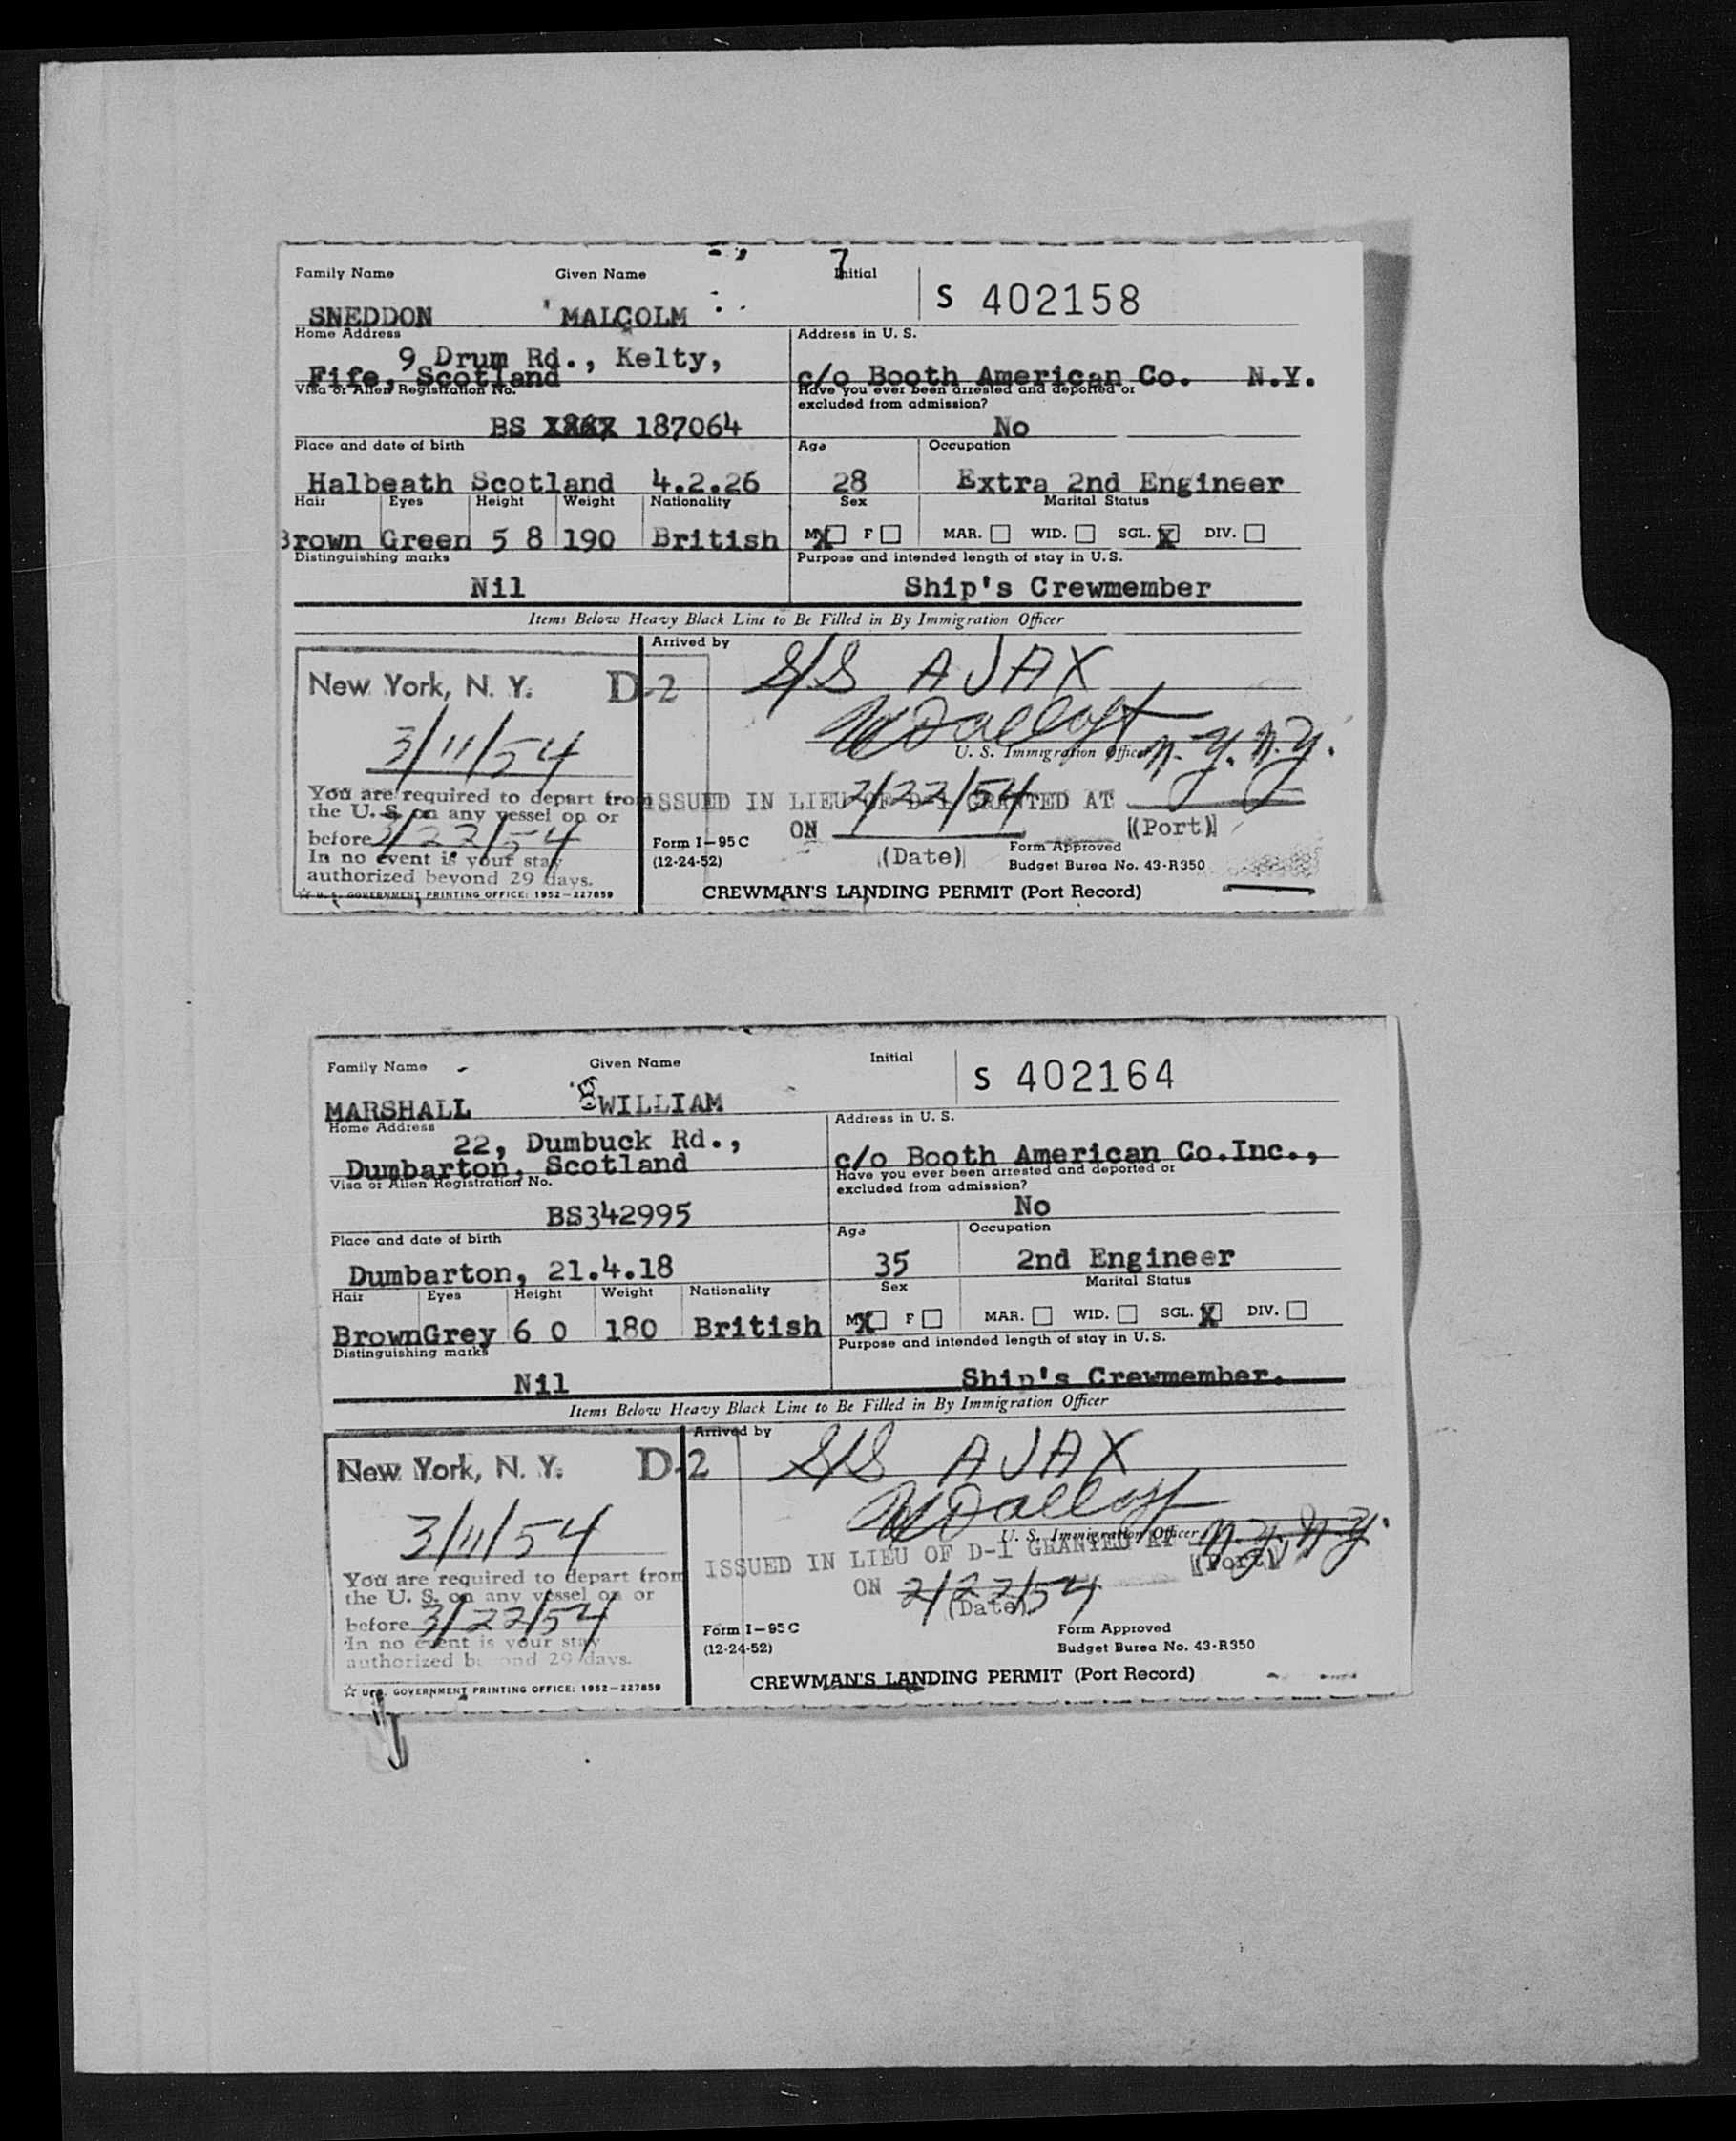 Family Name Given Name Initial
S 402158
SNEDDON MALCOLM
Home Address Address in U. S.
9 Drum Rd., Kelty,
Fife, Scotland c/o Booth American Co. N.Y.
Visa or Alien Registration No. Have you ever been arrested and deported or
excluded from admission?
BS 187064 No
Place and date of birth Age Occupation
Halbeath Scotland 4.2.26 28 Extra 2nd Engineer
Hair Eyes Height Weight Nationality Sex Marital Status
Brown Green 5 8 190 British M X F MAR. WID. SGL. X DIV.
Distinguishing marks Purpose and intended length of stay in U. S.
Nil Ship's Crewmember
Items Below Heavy Black Line to Be Filled in By Immigration Officer
Arrived by
S/S AJAX
New York, N. Y. D-2
3/11/54
U. S. Immigration Officer N.Y. N.Y.
You are required to depart from
the U. S. on any vessel on or
before 3/22/54
In no event is your stay
authorized beyond 29 days.
ISSUED IN LIEU OF D-1 GRANTED AT
(Port)
ON 2/22/54
(Date)
Form I-95 C Form Approved
(12-24-52) Budget Burea No. 43-R350
☆ U. S. GOVERNMENT PRINTING OFFICE: 1952-227859
CREWMAN'S LANDING PERMIT (Port Record)
Family Name Given Name Initial
S 402164
MARSHALL WILLIAM
Home Address Address in U. S.
22, Dumbuck Rd.,
Dumbarton, Scotland c/o Booth American Co.Inc.,
Visa or Alien Registration No. Have you ever been arrested and deported or
excluded from admission?
BS342995 No
Place and date of birth Age Occupation
Dumbarton, 21.4.18 35 2nd Engineer
Hair Eyes Height Weight Nationality Sex Marital Status
Brown Grey 6 0 180 British M X F MAR. WID. SGL. X DIV.
Distinguishing marks Purpose and intended length of stay in U. S.
Nil Ship's Crewmember.
Items Below Heavy Black Line to Be Filled in By Immigration Officer
Arrived by
S/S AJAX
New York, N. Y. D-2
3/11/54
U. S. Immigration Officer N.Y. N.Y.
ISSUED IN LIEU OF D-1 GRANTED AT
(Port)
ON 2/22/54
(Date)
You are required to depart from
the U. S. on any vessel on or
before 3/22/54
In no event is your stay
authorized beyond 29 days.
Form I-95 C Form Approved
(12-24-52) Budget Burea No. 43-R350
☆ U. S. GOVERNMENT PRINTING OFFICE: 1952-227859
CREWMAN'S LANDING PERMIT (Port Record)